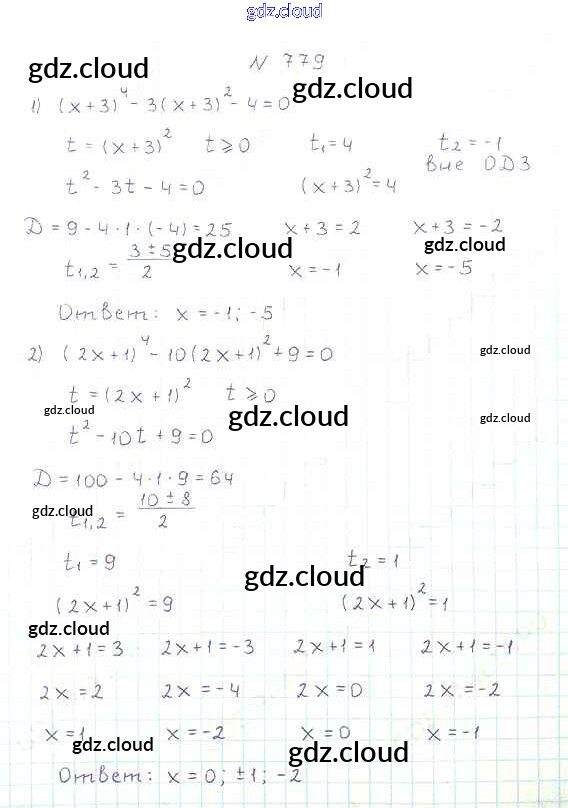 gdz.cloud
N 779
gdz.cloud gdz.cloud
1) (x+3)⁴ - 3(x+3)² - 4 = 0
t = (x+3)² t ⩾ 0 t₁ = 4 t₂ = -1
вне ОДЗ
t² - 3t - 4 = 0 (x+3)² = 4
D = 9 - 4·1·(-4) = 25 x+3 = 2 x+3 = -2
gdz.cloud gdz.cloud
t₁,₂ = (3 ± 5)/2 x = -1 x = -5
Ответ: x = -1; -5
2) (2x+1)⁴ - 10(2x+1)² + 9 = 0 gdz.cloud
t = (2x+1)² t ⩾ 0
gdz.cloud gdz.cloud gdz.cloud
t² - 10t + 9 = 0
D = 100 - 4·1·9 = 64
gdz.cloud
t₁,₂ = (10 ± 8)/2
t₁ = 9 t₂ = 1
gdz.cloud
(2x+1)² = 9 (2x+1)² = 1
gdz.cloud
2x+1 = 3 2x+1 = -3 2x+1 = 1 2x+1 = -1
2x = 2 2x = -4 2x = 0 2x = -2
x = 1 x = -2 x = 0 x = -1
gdz.cloud gdz.cloud
Ответ: x = 0; ±1; -2